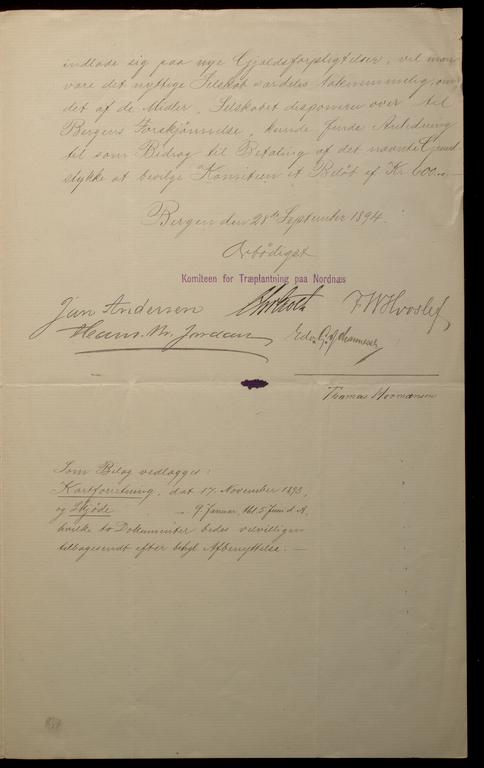 indlade sig paa nye Gjældsforpligtelser, vil man
være det nyttige Selskab særdeles taknemmelig, om
det af de Midler, Selskabet disponerer over til
Bergens Forskjønnelse, kunde finde Anledning
til som Bidrag til Betaling af det nævnte Grund
stykke at bevilge Komiteen et Beløb af Kr. 600.
Bergen den 28de September 1894.
Ærbødigst
Komiteen for Træplantning paa Nordnæs
Jan Andersen F W Hvoslef
Hans M. Jordan Edv. G.
Thomas Mormansen
Som Bilag vedlægges:
Kartforretning, dat 17. November 1893,
og Skjøde — 9. Januar, 16 15 Juni d. A.
hvilke to Dokumenter bedes velvilligen
tilbagesendt efter behgl. Afbenyttelse. —